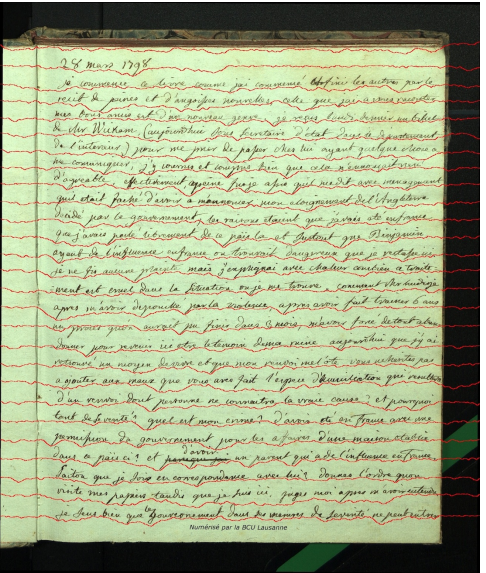 28 mars 1798
je commence ce livre comme j'ai commencé et fini les autres par le
recit de peines et d'angoisses nouvelles celle que j'ai a vous raconter
mes bons amis est d'un nouveau genre. je reçus lundi dernier un billet
de Mr Wickam (aujourdhui sous secretaire d'état dans le departement
de l'interieur) pour me prier de passer chez lui ayant quelque chose a
me communiquer, j'y courrus et compris bien que cela n'annonçait rien
d'agreable effectivement, apeine fus je assis qu'il me dit avec menagement
qu'il était faché d'avoir a m'annoncer mon eloignement de l'Angleterre
decidé par le gouvernement, les raisons etaient que j'avais eté en france
que j'avais parlé librement de ce païs la et surtout que Benjamin
ayant de l'influence en france on trouvait dangereux que je restasse ici
je ne fis aucune plainte mais j'exprimai avec chaleur combien ce traite
-ment est cruel dans la situation ou je me trouve, comment
apres m'avoir depouillée par la violence, apres avoir fait trainer 6 ans
un procès qu'on aurait pu finir dans 3 mois, m'avoir forcé de tout aban
donner pour revenir ici etre le temoin de ma ruine aujourdhui que j'y ai
retrouvé un moyen de vivre et que mon renvoi m'ote vous n'hesitez pas
a ajouter aux maux que vous avez fait l'espece d'humiliation que resultera
d'un renvoi dont personne ne connaitra la vraie cause? et pourquoi
tant de severité? quel est mon crime? d'avoir eté en france avec une
permission du gouvernement pour les affaires d'une maison etablie
dans ce païs ci? et d'avoir un parent qui a de l'influence en france
Sait on que je sois en correspondance avec lui? donnez l'ordre qu'on
visite mes papiers tandis que je suis ici, jugez moi apres m'avoir entendu
je sens bien que le Gouvernement dans ses mesures de severité ne peut entrer
Numérisé par la BCU Lausanne